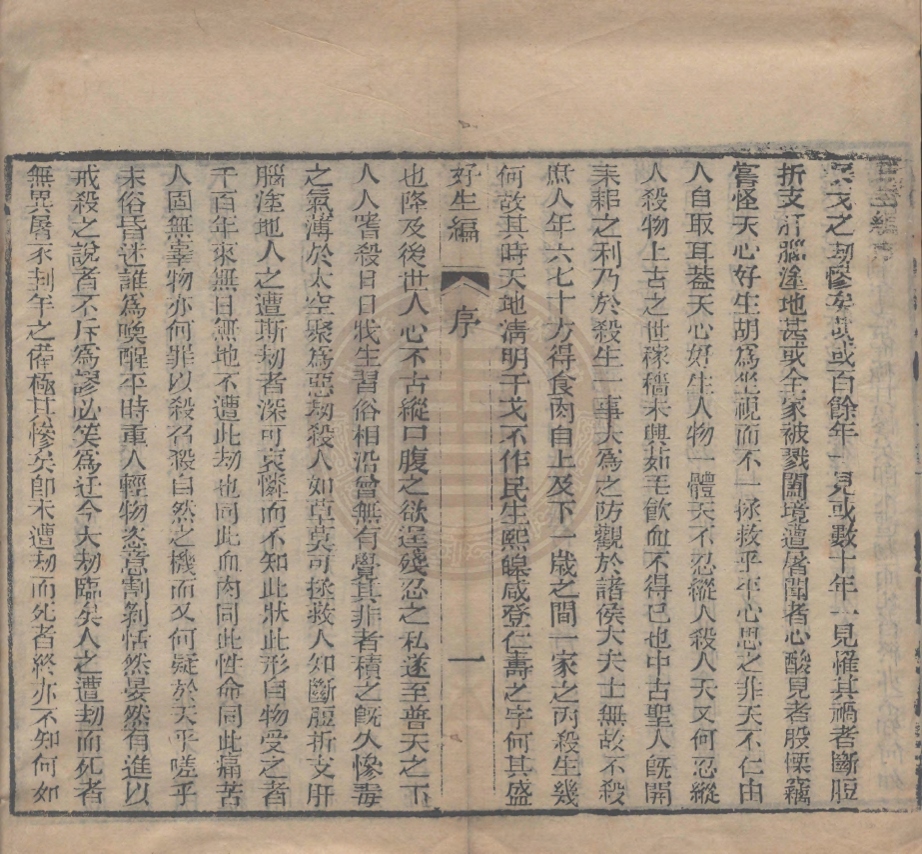 兵戈之劫慘矣哉或百餘年一見或數十年一見罹其禍者斷脰
折支肝腦塗地甚或全家被戮闔境遭屠聞者心酸見者股慄竊
嘗怪天心好生胡爲坐視而不一拯救乎平心思之非天不仁由
人自取耳葢天心好生人物一體天不忍縱人殺人天又何忍縱
人殺物上古之世稼穡未興茹毛飲血不得已也中古聖人旣開
耒耜之利乃於殺生一事大爲之防觀於諸侯大夫士無故不殺
庶人年六七十方得食肉自上及下一歲之間一家之內殺生幾
何故其時天地淸明干戈不作民生熙皥咸登仁壽之宇何其盛
好生編 序 一
也降及後世人心不古縱口腹之欲逞殘忍之私遂至普天之下
人人嗜殺日日戕生習俗相沿曾無有覺其非者積之旣久慘毒
之氣薄於太空聚爲惡劫殺人如草莫可拯救人知斷脰折支肝
腦塗地人之遭斯劫者深可哀憐而不知此狀此形自物受之者
千百年來無日無地不遭此劫也同此血肉同此性命同此痛苦
人固無辜物亦何罪以殺召殺自然之機而又何疑於天乎嗟乎
末俗昏迷誰爲喚醒平時重人輕物恣意割剝恬然晏然有進以
戒殺之說者不斥爲謬必笑爲迂今大劫臨矣人之遭劫而死者
無異屠豕刲羊之備極其慘矣卽未遭劫而死者終亦不知何如